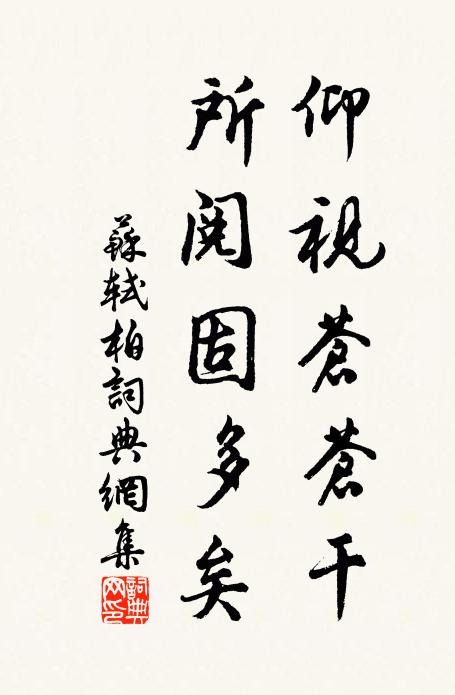 仰視蒼蒼干
所閱固多矣
蘇軾柏詞典網集
詞典網印